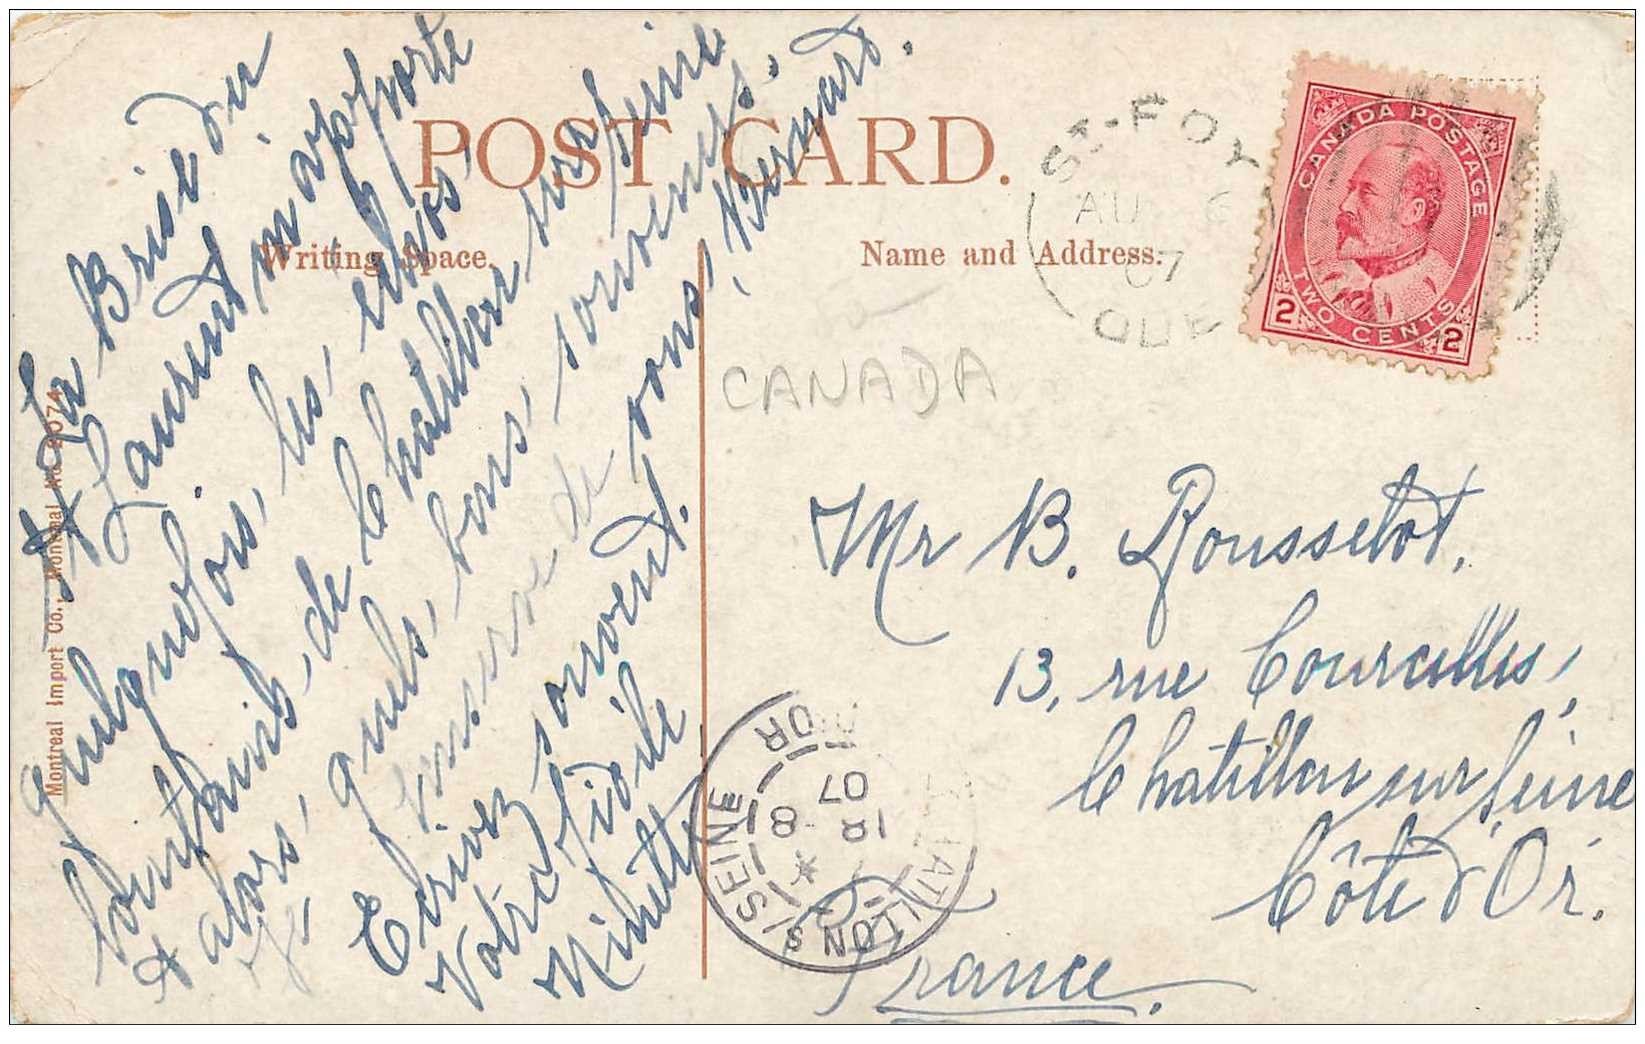 POST CARD.
Writing Space.
Name and Address:
Montreal Import Co., Montreal No. 2074
La Brise du
St Laurent m'apporte
quelquefois, les, échos,
lointains, de Chatillon sur Seine
et alors, quels, bons, souvenirs,
je conserve de vous, Bernard.
Ecrivez souvent.
Votre fidèle
Ninette
CANADA
ST-FOY
AU 6
07
QUE
CANADA POSTAGE
2 TWO CENTS 2
Mr B. Rousselot,
13, rue Courcelles,
Chatillon sur Seine
Côte d'Or.
France.
CHATILLON S/SEINE
18 - 8
07